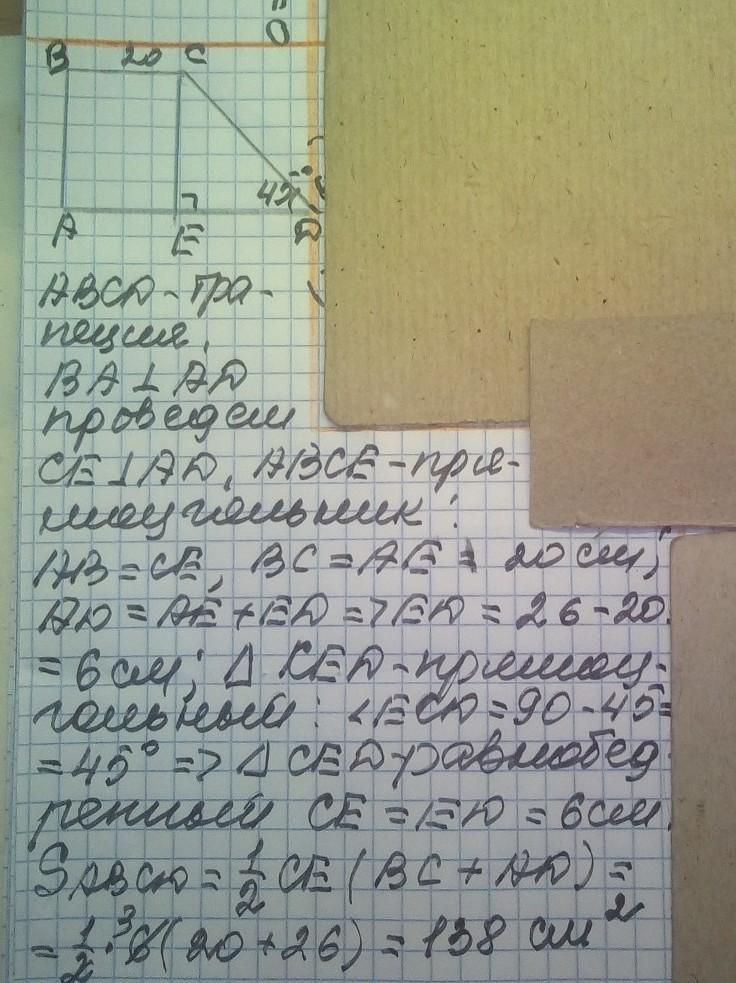 B 20 C
45°
A E D
ABCD-тра-
пеция.
BA⊥AD
проведем
CE⊥AD, ABCE-пря-
моугольник:
AB=CE, BC=AE = 20 см;
AD=AE+ED=>ED=26-20
=6см; Δ CED-прямоу-
гольный: ∠ECD=90-45=
=45° => Δ CED-равнобед
ренный CE=ED=6см.
SABCD=1/2 CE(BC+AD)=
=1/2·6 3(20+26)=138 см²